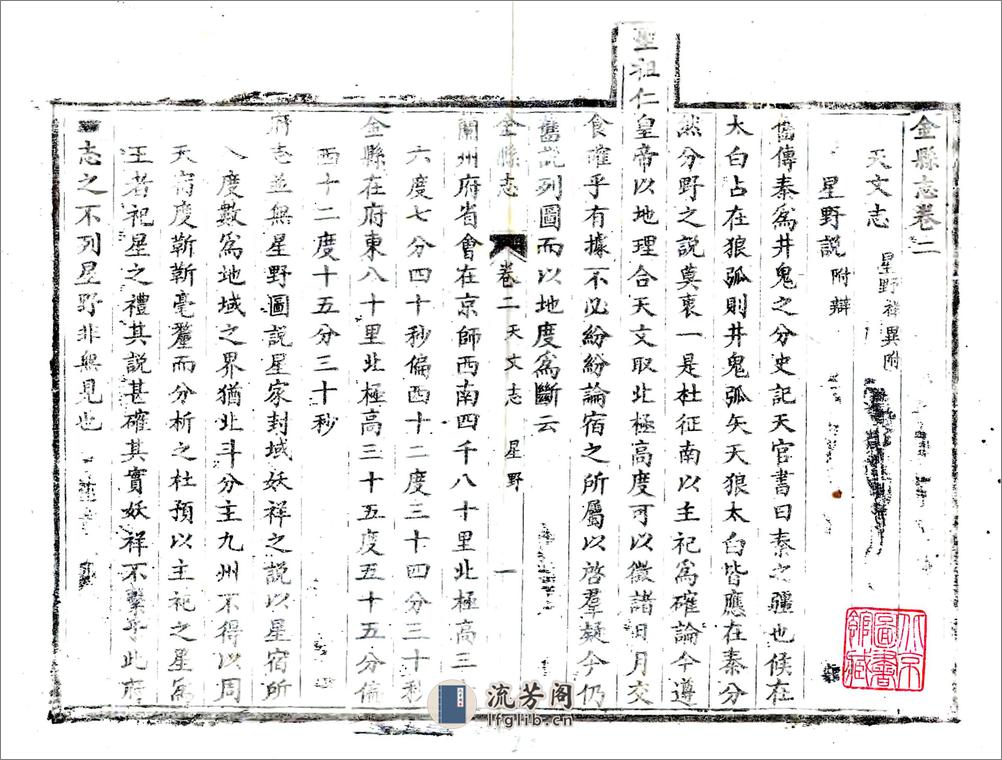 金縣志卷二
天文志 星野祥異附
星野說 附辯
舊傳秦爲井鬼之分史記天官書曰秦之疆也候在
太白占在狼弧則井鬼弧矢天狼太白皆應在秦分
然分野之說莫衷一是杜征南以主祀爲確論今遵
聖祖仁皇帝以地理合天文取北極高度可以徵諸日月交
食確乎有據不必紛紛論宿之所屬以啓羣疑今仍
舊說列圖而以地度爲斷云
金縣志 卷二 天文志 星野 一
蘭州府省會在京師西南四千八十里北極高三十
六度七分四十秒偏西十二度三十四分三十秒
金縣在府東八十里北極高三十五度五十五分偏
西十二度十五分三十秒
府志並無星野圖說星家封域妖祥之說以星宿所
入度數爲地域之界猶北斗分主九州不得以周
天宿度斬斬毫釐而分析之杜預以主祀之星爲
王者祀星之禮其說甚確其實妖祥不繫乎此府
志之不列星野非無見也
北京圖書館藏
流芳阁
lfglib.cn